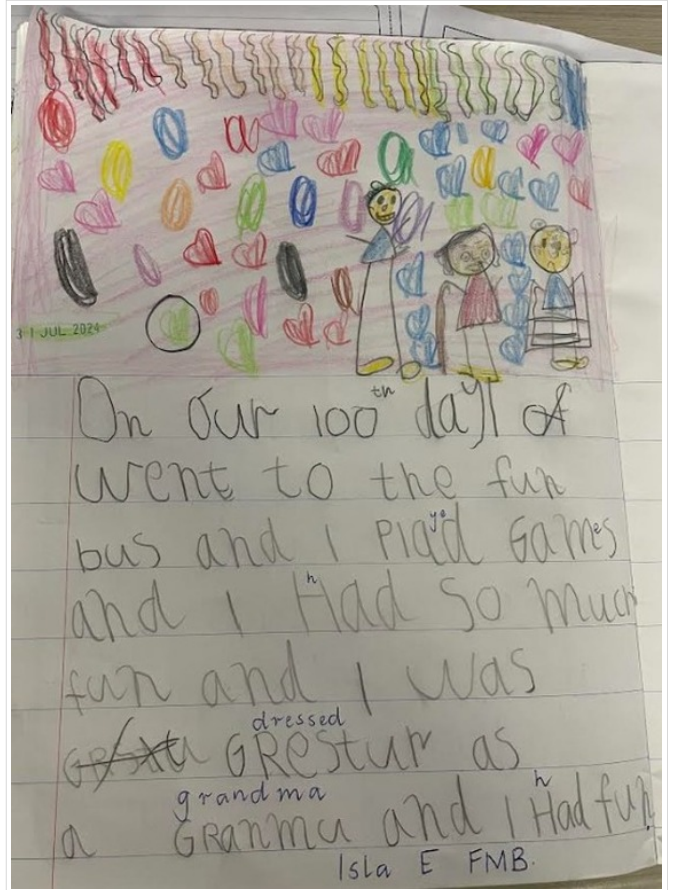 31 JUL 2024
th
On our 100 day I of
went to the fun
ye
bus and I Plad Games
h
and I Had So much
fun and I was
dressed
GRestur as
grandma h
a GRanmu and I Had fun
Isla E FMB.